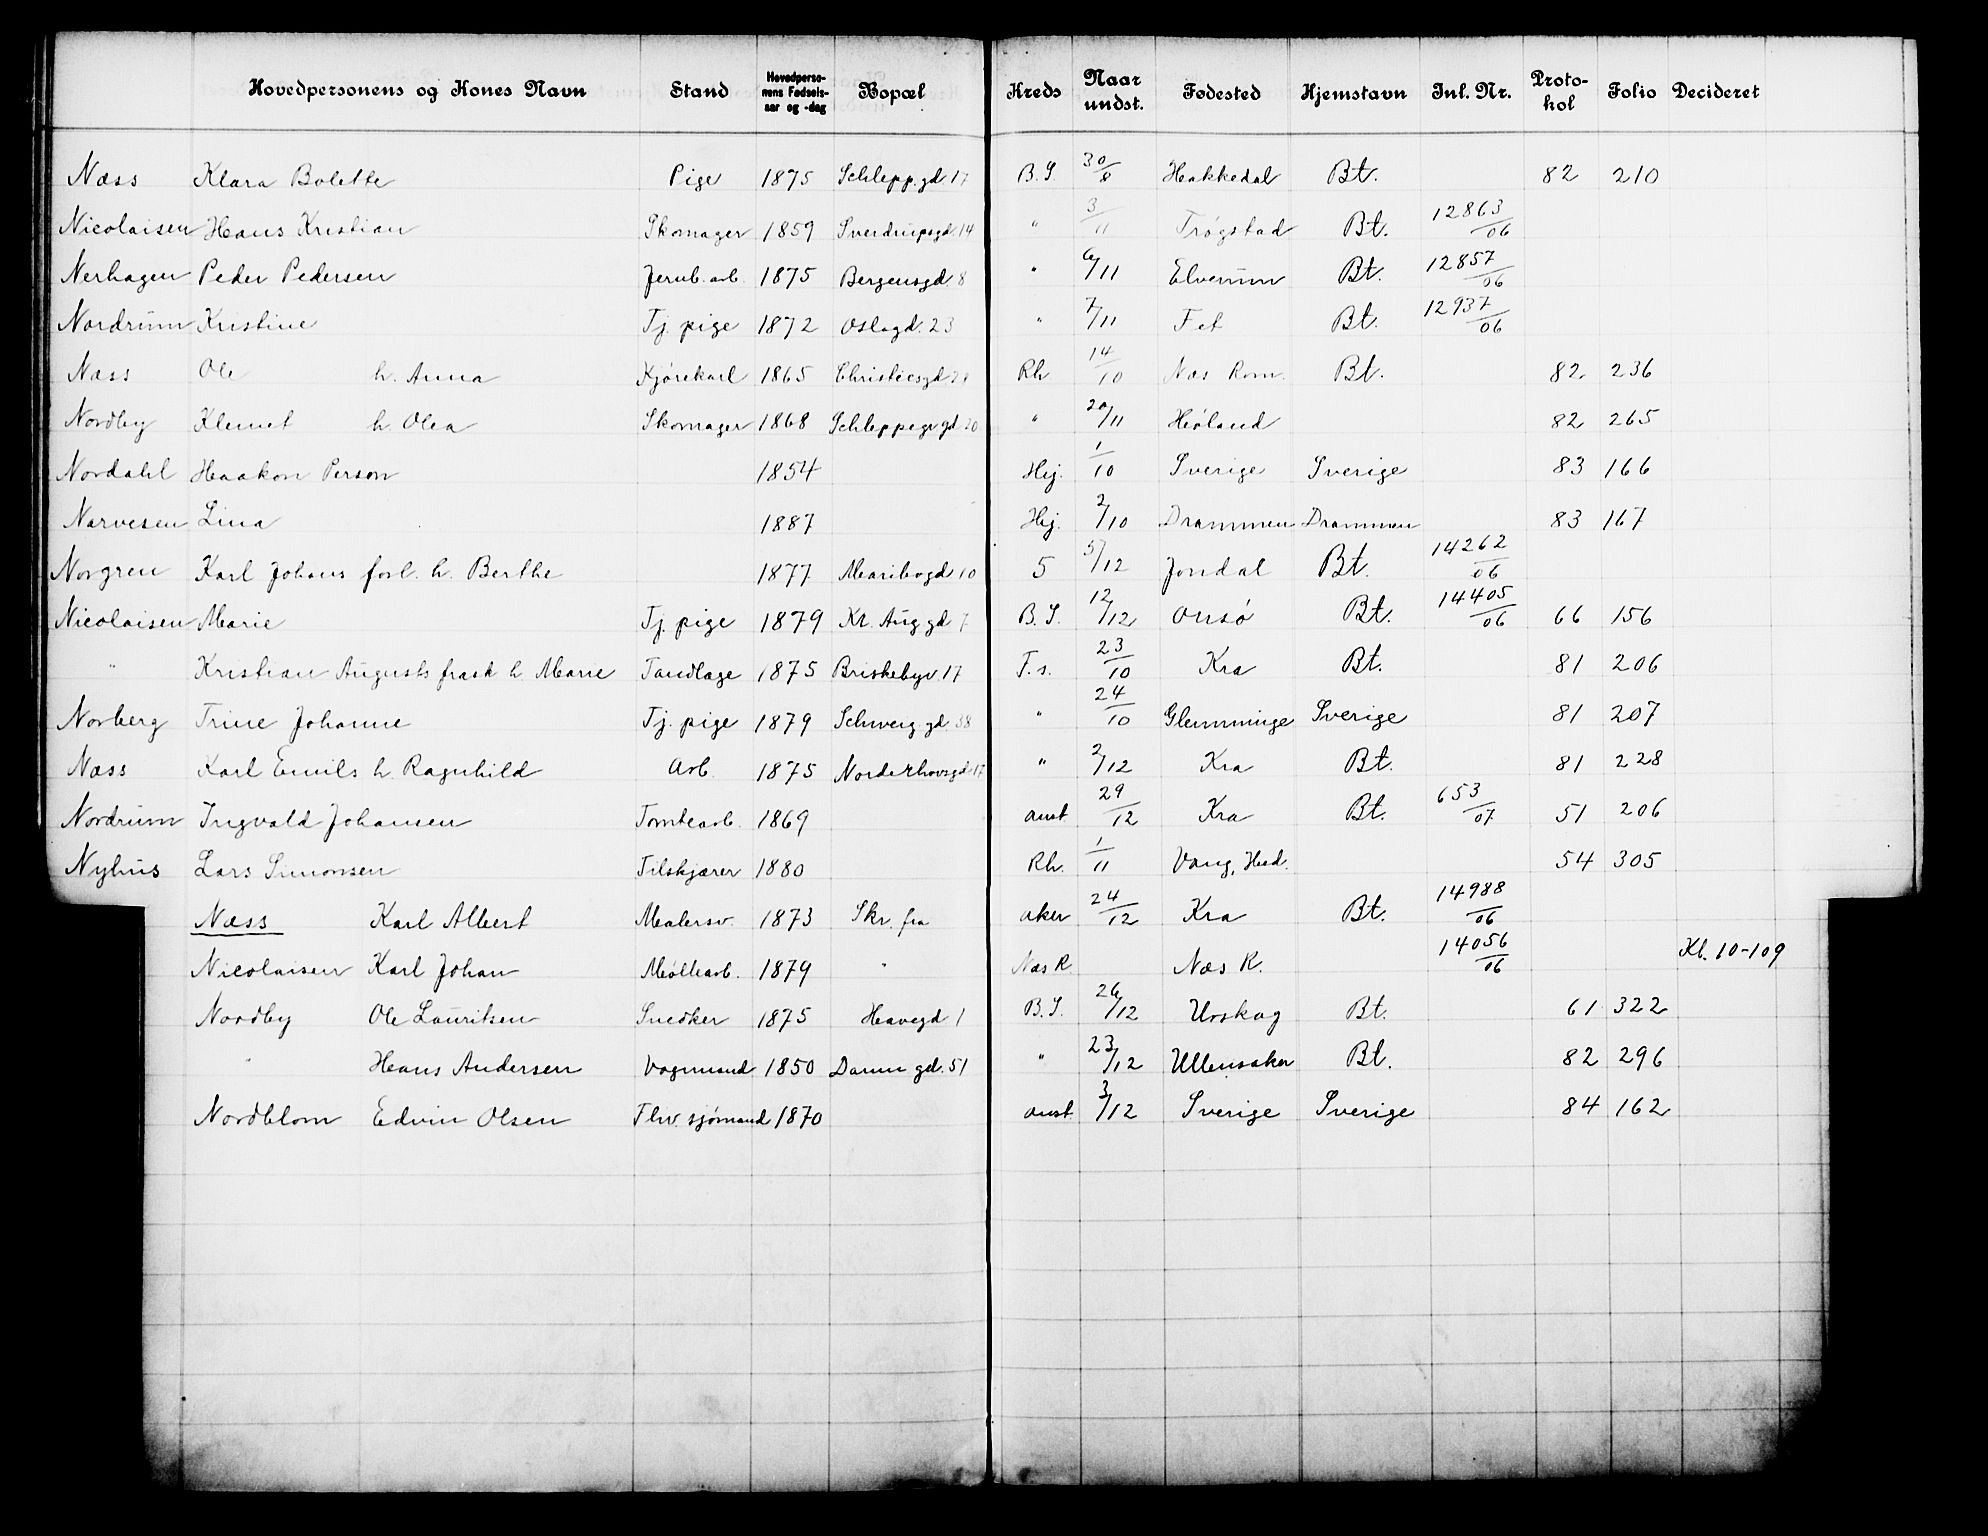 Hovedpersonens og Kones Navn Stand Hovedperso-nens Fødsels-aar og -dag Bopæl Kreds Naar undst. Fødested Hjemstavn Inl. Nr. Proto-kol Folio Decideret
Næss Klara Bolette Pige 1875 Schlepp.gd 17 B.S. 30/8 Hakkedal Bt. 82 210
Nicolaisen Hans Kristian Skomager 1859 Sverdrupsgd. 14 " 3/11 Trøgstad Bt. 12863/06
Nerhagen Peder Pedersen Jernb. arb. 1875 Bergensgd. 8 " 6/11 Elverum Bt. 12857/06
Nordrum Kristine Tj. pige 1872 Oslogd. 23 " 7/11 Fet Bt. 12937/06
Næss Ole h. Anna Kjørekarl 1865 Christiesgd 14/10 Rh Næs Rom. Bt. 82 236
Nordby Klemet h. Olea Skomager 1868 Schleppegr gd 20 " 20/11 Høland 82 265
Nordahl Haakon Person 1854 Hej. 1/10 Sverige Sverige 83 166
Narvesen Lina 1887 Hej. 2/10 Drammen Drammen 83 167
Norgren Karl Johans forl. h. Berthe 1877 Maribogd 10 5 5/12 Jondal Bt. 14262/06
Nicolaisen Marie Tj. pige 1879 Kr. Aug gd 7 B.S. 12/12 Onsø Bt. 14405/06 66 156
" Kristian Augusts frask h Marie Tandlæge 1875 Briskebyv. 17 F.s. 23/10 Kra Bt. 81 206
Norberg Trine Johanne Tj. pige 1879 Schweig.gd. 38 " 24/10 Glemminge Sverige 81 207
Næss Karl Emils h. Ragnhild Arb. 1875 Norderhovsgd. 17 " 2/12 Kra Bt. 81 228
Nordrum Ingvald Johansen Tomtearb. 1869 anst 29/12 Kra Bt. 653/07 51 206
Nyhus Lars Simonsen Tilskjærer 1880 Rh. 1/11 Vang, Hed. 54 305
Næss Karl Albert Malersv. 1873 Skr. fra Aker 24/12 Kra Bt. 14988/06
Nicolaisen Karl Johan Møllearb. 1879 " Næs R. Næs R. 14056/06 Kl. 10-109
Nordby Ole Lauritsen Snedker 1875 Havegd 1 B.S. 26/12 Urskog Bt. 61 322
" Hans Andersen Vognmand 1850 Damm gd. 51 " 23/12 Ullensaker Bt. 82 296
Nordblom Edvin Olsen Fhv. sjømand 1870 anst. 3/12 Sverige Sverige 84 162